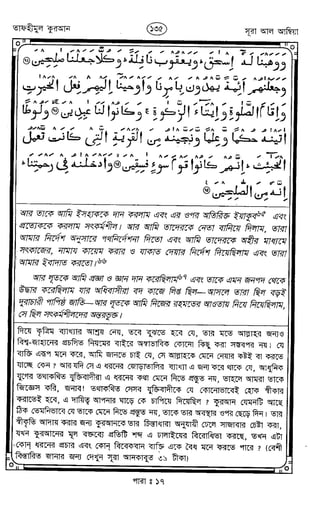 তাফহীমুল কুরআন
১৩৫
সূরা আল আম্বিয়া
وَوَهَبْنَا لَهٗٓ اِسْحٰقَ ؕ وَيَعْقُوْبَ نَافِلَةً ؕ وَكُلًّا جَعَلْنَا صٰلِحِيْنَ
وَجَعَلْنٰهُمْ اَئِمَّةً يَّهْدُوْنَ بِاَمْرِنَا وَاَوْحَيْنَآ اِلَيْهِمْ فِعْلَ الْخَيْرٰتِ
وَاِقَامَ الصَّلٰوةِ وَاِيْتَآءَ الزَّكٰوةِ ۚ وَكَانُوْا لَنَا عٰبِدِيْنَ ۙ وَلُوْطًا
اٰتَيْنٰهُ حُكْمًا وَّعِلْمًا وَّنَجَّيْنٰهُ مِنَ الْقَرْيَةِ الَّتِيْ كَانَتْ تَّعْمَلُ
الْخَبٰٓئِثَ ؕ اِنَّهُمْ كَانُوْا قَوْمَ سَوْءٍ فٰسِقِيْنَ ۙ وَاَدْخَلْنٰهُ فِيْ رَحْمَتِنَا ؕ
اِنَّهٗ مِنَ الصّٰلِحِيْنَ
আর তাকে আমি ইসহাককে দান করলাম এবং এর ওপর অতিরিক্ত ইয়াকুব এবং
প্রত্যেককে করলাম সৎকর্মশীল। আর আমি তাদেরকে নেতা বানিয়ে দিলাম, তারা
আমার নির্দেশ অনুসারে পথনির্দেশনা দিতো এবং আমি তাদেরকে অহীর মাধ্যমে
সৎকাজের, নামায কায়েম করার ও যাকাত দেয়ার নির্দেশ দিয়েছিলাম এবং তারা
আমার ইবাদাত করতো।
আর লূতকে আমি প্রজ্ঞা ও জ্ঞান দান করেছিলাম এবং তাকে এমন জনপদ থেকে
উদ্ধার করেছিলাম যার অধিবাসীরা বদ কাজে লিপ্ত ছিল—আসলে তারা ছিল বড়ই
দুরাচারী পাপিষ্ঠ জাতি—আর লূতকে আমি নিজের রহমতের আওতায় নিয়ে নিয়েছিলাম,
সে ছিল সৎকর্মশীলদের অন্তরভুক্ত।
দিয়ে কৃত্রিম ব্যাখ্যার আশ্রয় নেয়, তবে বুঝতে হবে যে, তার মতে আল্লাহর জন্যও
বিশ্ব-জাহানের প্রচলিত নিয়মের বাইরে অস্বাভাবিক কোনো কিছু করা সম্ভবপর নয়। যে
ব্যক্তি এরূপ মনে করে, আমি জানতে চাই যে, সে আল্লাহকে মেনে নেয়ার কষ্টই বা করতে
যাচ্ছে কেন? আর যদি সে এ ধরনের জোড়াতালির ব্যাখ্যা এ জন্য করে থাকে যে, আধুনিক
যুগের তথাকথিত যুক্তিবাদীরা এ ধরনের কথা মেনে নিতে প্রস্তুত নয়, তাহলে আমরা তাকে
জিজ্ঞেস করি, জনাব! তথাকথিত সেসব যুক্তিবাদীকে যে কোনোভাবেই হোক স্বীকার
করাতেই হবে, এ দায়িত্ব আপনার ঘাড়ে কে চাপিয়ে দিয়েছিল? কুরআন যেমনটি আছে
ঠিক তেমনিভাবে যে তাকে মেনে নিতে প্রস্তুত নয়, তাকে তার অবস্থার ওপর ছেড়ে দিন। তার
স্বীকৃতি আদায় করার জন্য কুরআনকে তার চিন্তাধারা অনুযায়ী ঢেলে সাজাবার চেষ্টা করা,
যখন কুরআনের মূল বক্তব্যে প্রতিটি শব্দ এ ঢালাইয়ের বিরোধিতা করছে, তখন এটা
কোন্ ধরনের প্রচার এবং কোন্ বিবেকবান ব্যক্তি একে বৈধ মনে করতে পারে? (বেশী
বিস্তারিত জানার জন্য দেখুন সূরা আনকাবুত ৩৯ টীকা)
পারা : ১৭